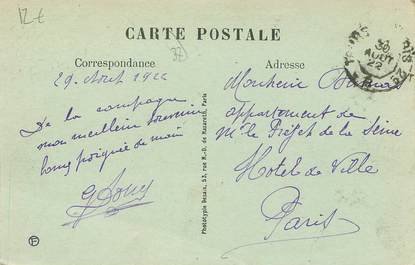 12€
CARTE POSTALE
Correspondance
32
Adresse
30
AOUT
22
29 Aout 1922
De la campagne
mon meilleur souvenir
bonne poignée de main
Monsieur
appartement de
Mr le Préfet de la Seine
Hotel de Ville
Paris
Phototypie Desaix, 53, rue N.-D. de Nazareth, Paris